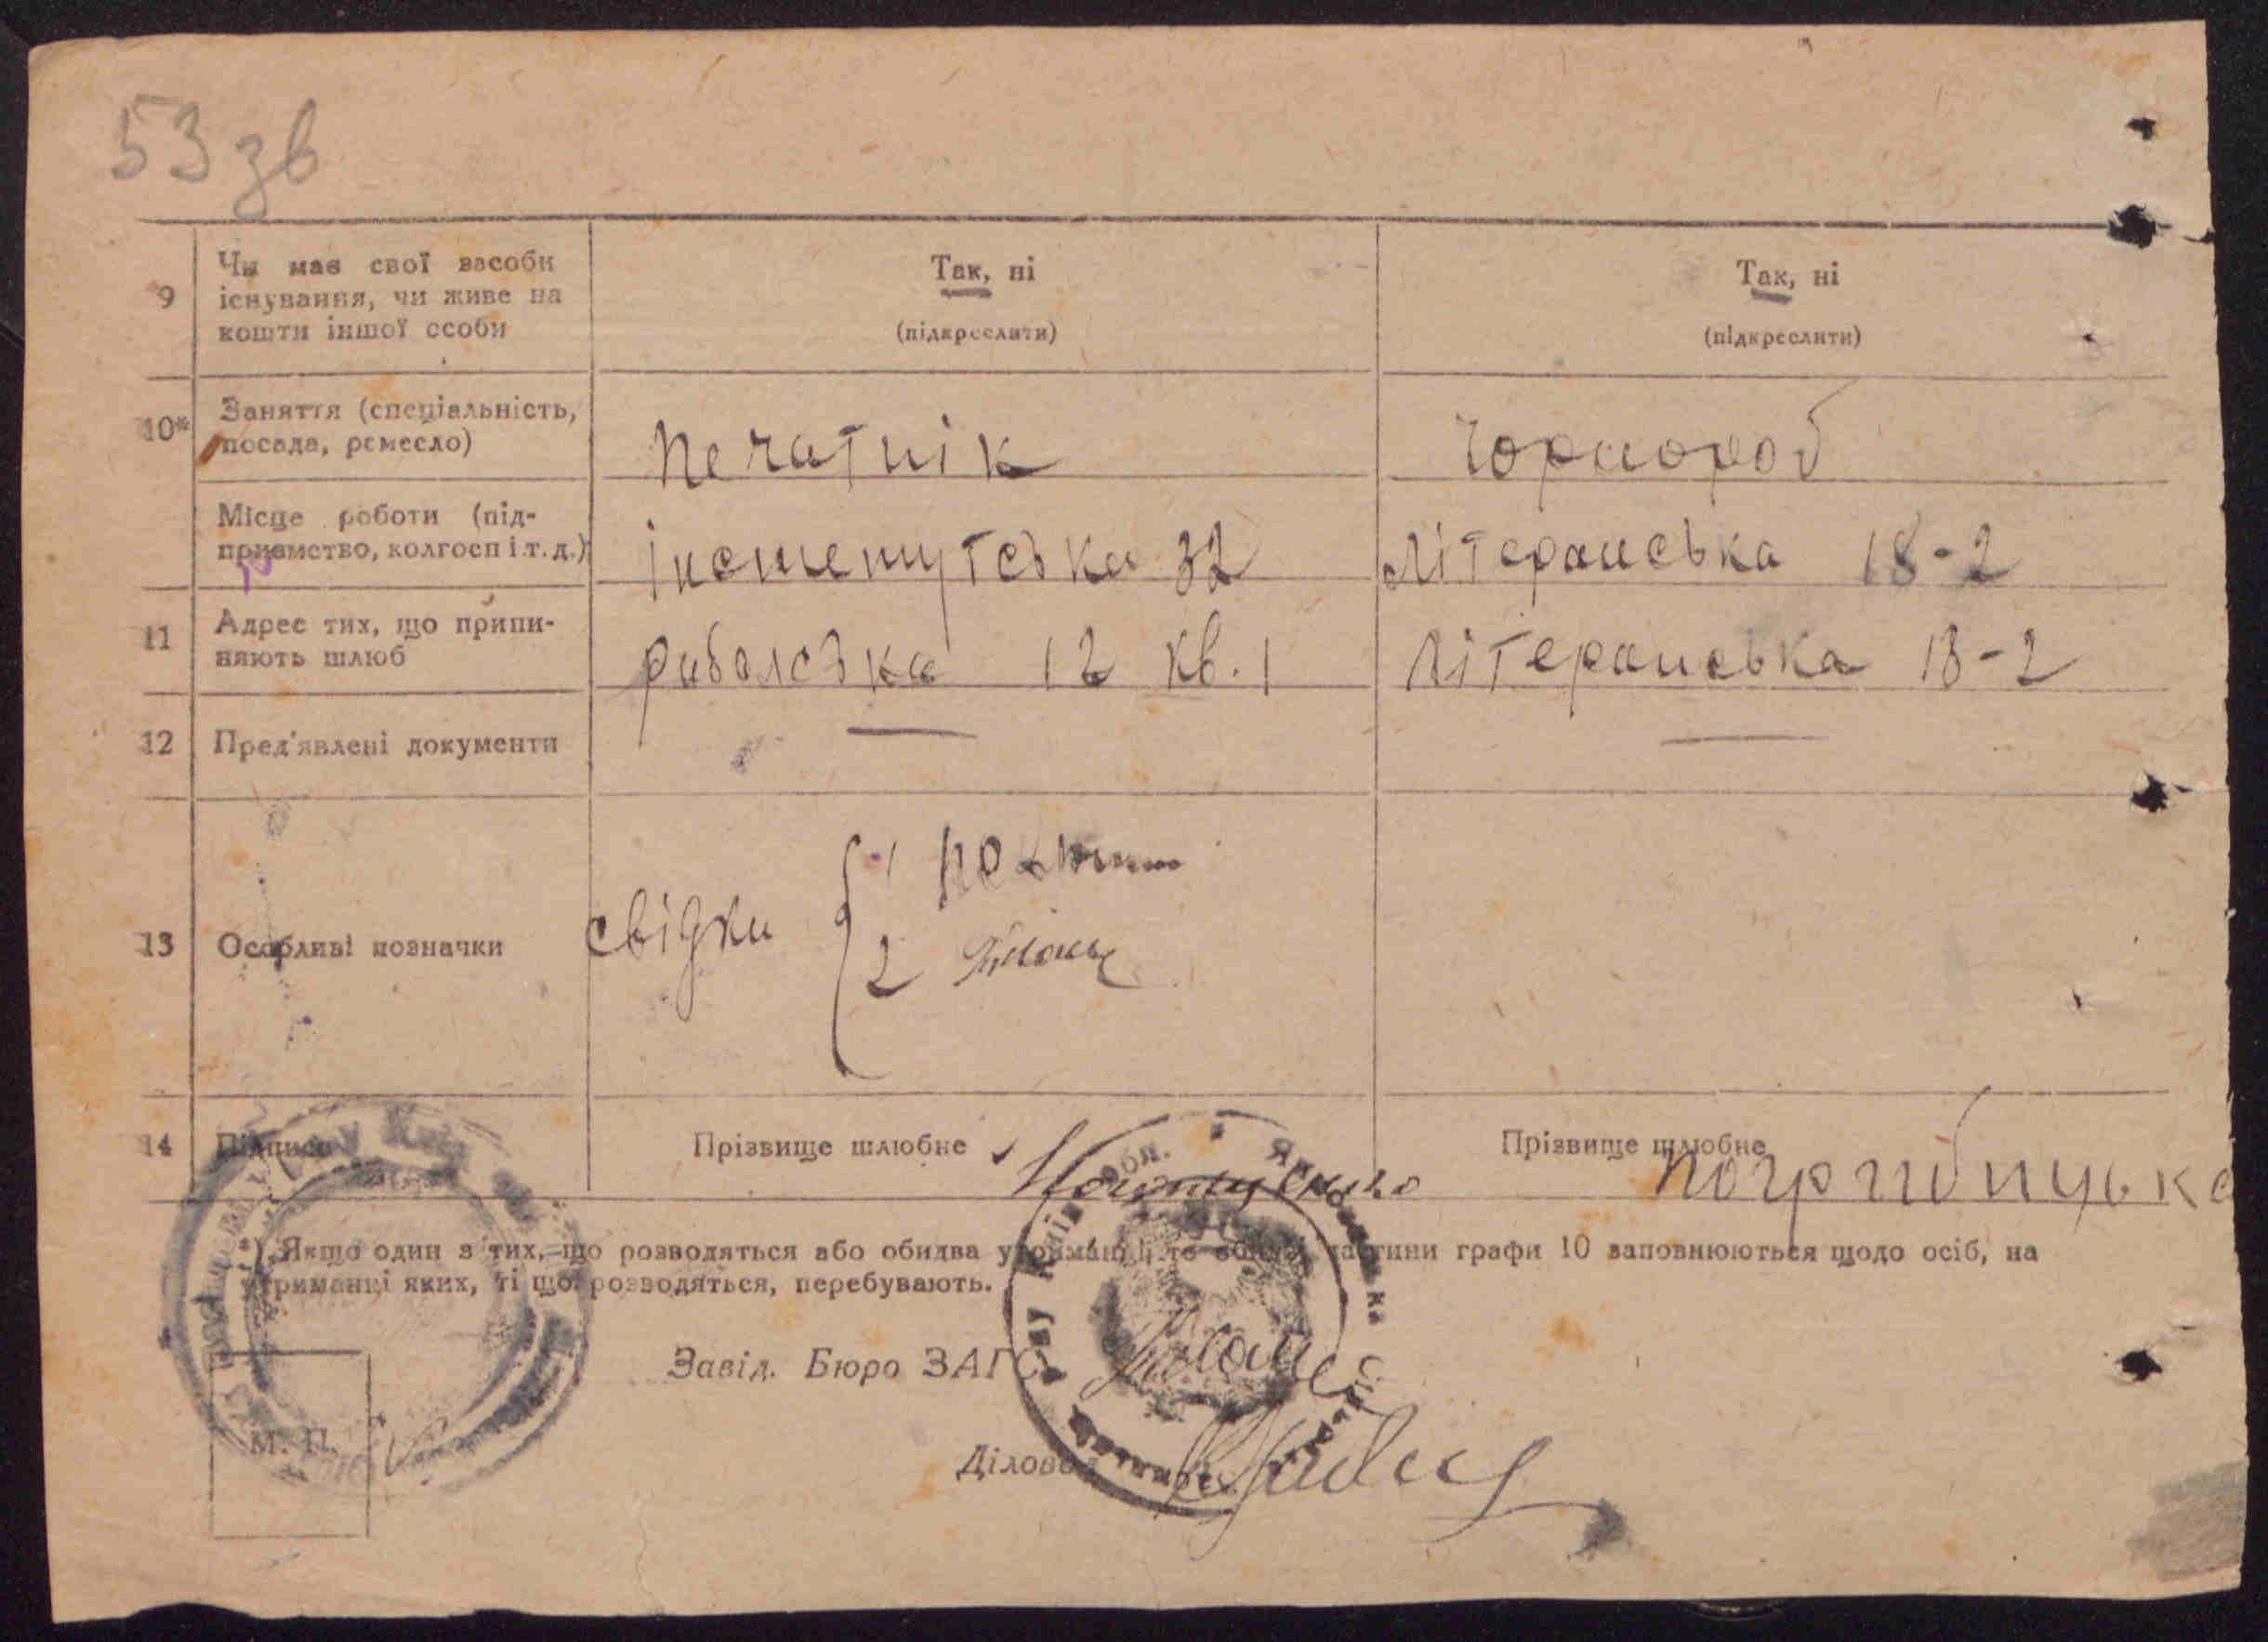 53 зв
9
Чи має свої засоби
існування, чи живе на
кошти іншої особи
Так, ні
(підкреслити)
Так, ні
(підкреслити)
10*
Заняття (спеціальність,
посада, ремесло)
печатнік
Чорнороб
Місце роботи (під-
приємство, колгосп і т. д.)
Інститутська 32
Літеранська 18-2
11
Адрес тих, що припи-
няють шлюб
рибальска 12 кв. 1
Літеранська 18-2
12
Пред'явлені документи
13
Особливі позначки
свідки
1
2
14
Підписи
Прізвище шлюбне
Прізвище шлюбне
*) Якщо один з тих, що розводяться або обидва утриманці, то обидві частини графи 10 заповнюються щодо осіб, на
утриманні яких, ті що розводяться, перебувають.
Завід. Бюро ЗАГС
Діловод
М. П.